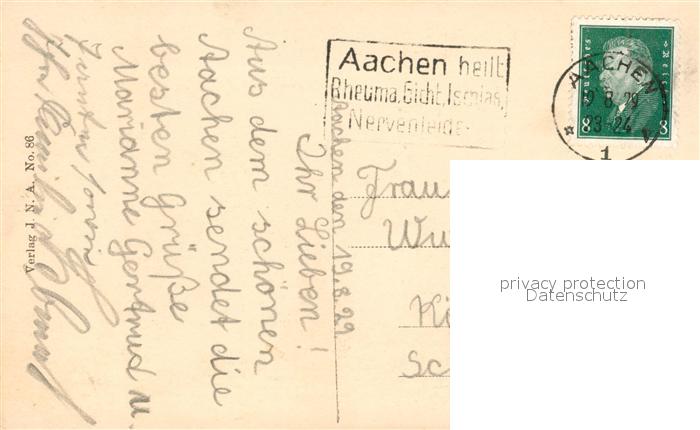 Aachen heilt
Rheuma, Gicht, Ischias,
Nervenleid
Deutsches Reich
8 8
AACHEN
9.8.29
23-24
1
Aachen den 19.8.29
Ihr Lieben!
Aus dem schönen
Aachen sendet die
besten Grüße
Marianne Gertrud u.
Frau
Wu
Ki
Sc
Verlag J. N. A. No. 86
privacy protection
Datenschutz